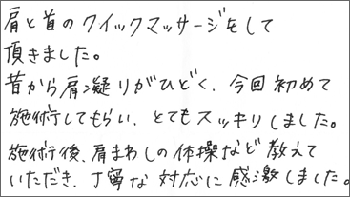 肩と首のクイックマッサージをして
頂きました。
昔から肩凝りがひどく、今回初めて
施術してもらい、とてもスッキリしました。
施術後、肩まわしの体操など教えて
いただき、丁寧な対応に感激しました。